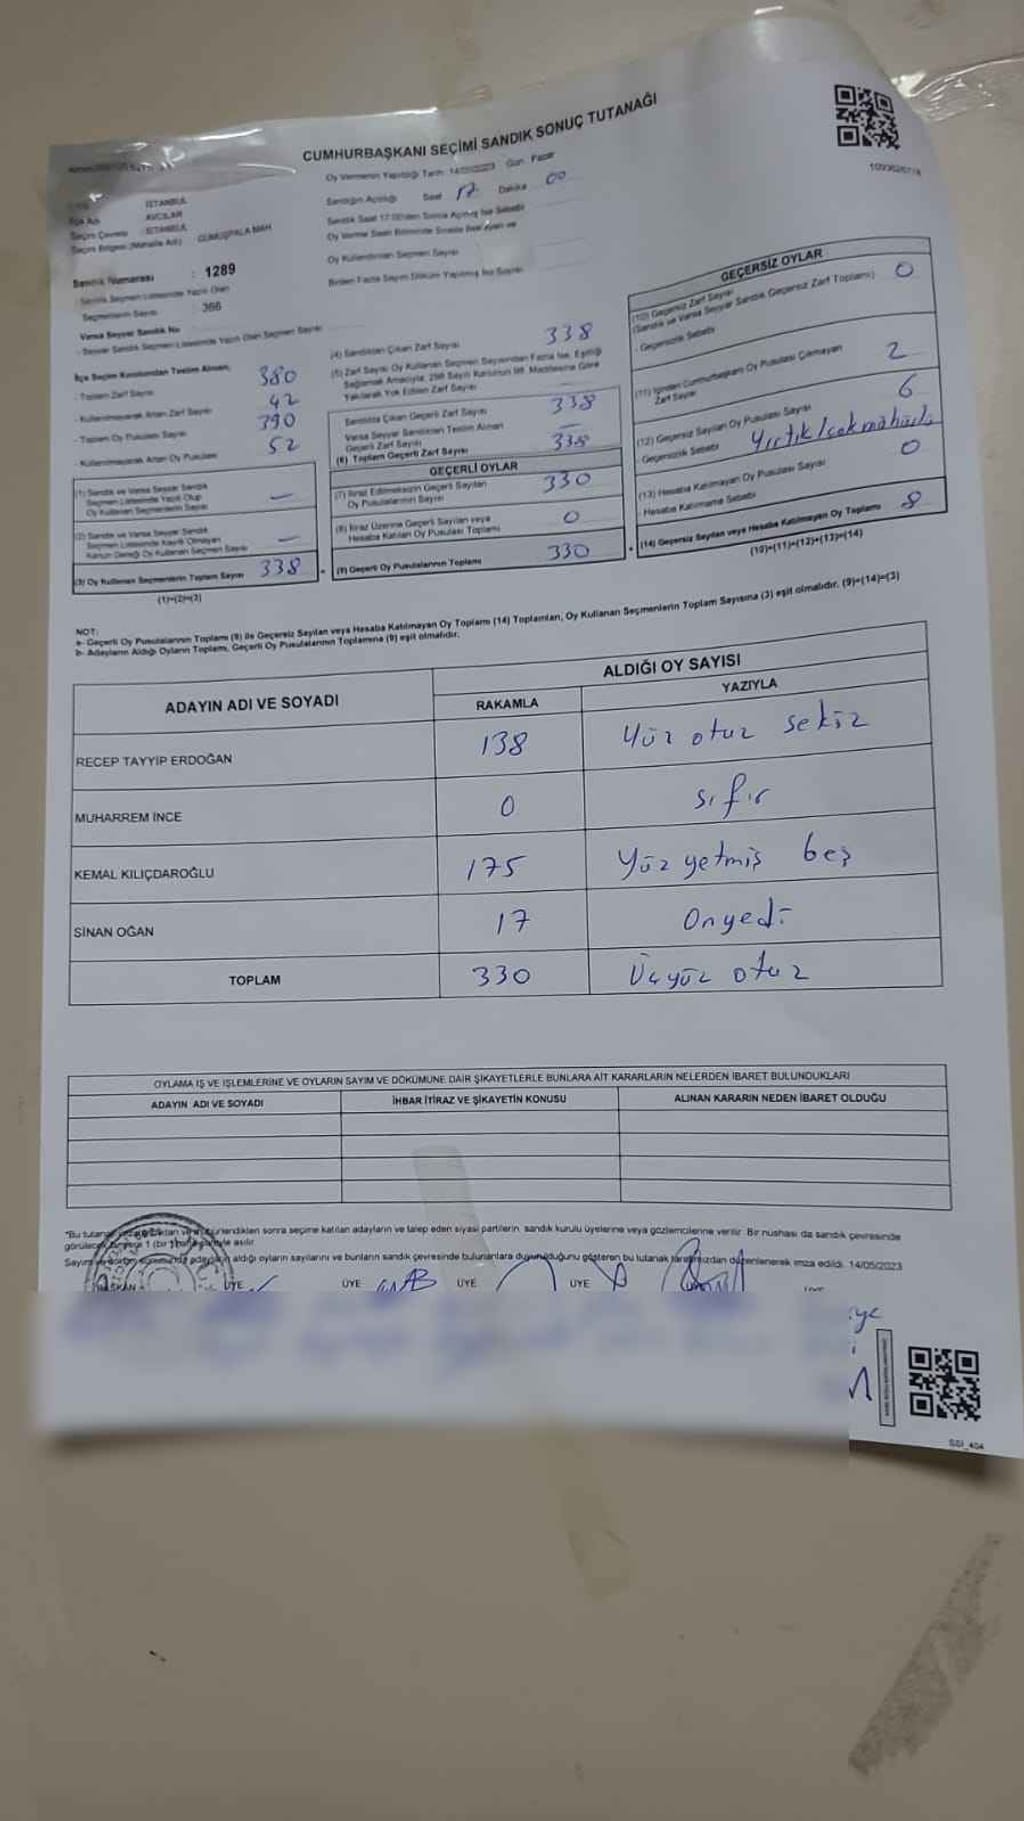 CUMHURBAŞKANI SEÇİMİ SANDIK SONUÇ TUTANAĞI
Oy Vermenin Yapıldığı Tarih 14/05/2023 Gün Pazar
Sandığın Açıldığı Saat 17 Dakika 00
İSTANBUL
İlçe Adı AVCILAR
Seçim Çevresi İSTANBUL
Seçim Bölgesi (Mahalle Adı) GÜMÜŞPALA MAH
Sandık Numarası : 1289
Sandık Seçmen Listesinde Yazılı Olan
Seçmenlerin Sayısı 366
Varsa Seyyar Sandık No
- Seyyar Sandık Seçmen Listesinde Yazılı Olan Seçmen Sayısı
İlçe Seçim Kurulundan Teslim Alınan;
- Toplam Zarf Sayısı 380
- Kullanılmayarak Artan Zarf Sayısı 42
- Toplam Oy Pusulası Sayısı 390
- Kullanılmayarak Artan Oy Pusulası 52
(1) Sandık ve Varsa Seyyar Sandık
Seçmen Listesinde Yazılı Olup
Oy Kullanan Seçmenlerin Sayısı —
(2) Sandık ve Varsa Seyyar Sandık
Seçmen Listesinde Kayıtlı Olmayan
Kanun Gereği Oy Kullanan Seçmen Sayısı —
(3) Oy Kullanan Seçmenlerin Toplam Sayısı 338
(1)+(2)=(3)
Sandık Saat 17:00'den Sonra Açılmış İse Sebebi
Oy Kullandırılan Seçmen Sayısı
Birden Fazla Sayım Döküm Yapılmış İse Sayısı
(4) Sandıktan Çıkan Zarf Sayısı 338
(5) Zarf Sayısı Oy Kullanan Seçmen Sayısından Fazla İse, Eşitliği
Sağlamak Amacıyla, 298 Sayılı Kanunun 98. Maddesine Göre
Yakılarak Yok Edilen Zarf Sayısı
Sandıkta Çıkan Geçerli Zarf Sayısı 338
Varsa Seyyar Sandıktan Teslim Alınan
Geçerli Zarf Sayısı —
(6) Toplam Geçerli Zarf Sayısı 338
GEÇERLİ OYLAR
(7) İtiraz Edilmeksizin Geçerli Sayılan
Oy Pusulalarının Sayısı 330
(8) İtiraz Üzerine Geçerli Sayılan veya
Hesaba Katılan Oy Pusulası Toplamı 0
(9) Geçerli Oy Pusulalarının Toplamı 330
GEÇERSİZ OYLAR
(10) Geçersiz Zarf Sayısı
(Sandık ve Varsa Seyyar Sandık Geçersiz Zarf Toplamı) 0
- Geçersizlik Sebebi
(11) İçinden Cumhurbaşkanı Oy Pusulası Çıkmayan
Zarf Sayısı 2
(12) Geçersiz Sayılan Oy Pusulası Sayısı 6
Geçersizlik Sebebi Yırtık/çok mühürlü
(13) Hesaba Katılmayan Oy Pusulası Sayısı 0
- Hesaba Katılmama Sebebi
(14) Geçersiz Sayılan veya Hesaba Katılmayan Oy Toplamı 8
(10)+(11)+(12)+(13)=(14)
NOT:
a- Geçerli Oy Pusulalarının Toplamı (9) ile Geçersiz Sayılan veya Hesaba Katılmayan Oy Toplamı (14) Toplamları, Oy Kullanan Seçmenlerin Toplam Sayısına (3) eşit olmalıdır. (9)+(14)=(3)
b- Adayların Aldığı Oyların Toplamı, Geçerli Oy Pusulalarının Toplamına (9) eşit olmalıdır.
ADAYIN ADI VE SOYADI
ALDIĞI OY SAYISI
RAKAMLA YAZIYLA
RECEP TAYYİP ERDOĞAN 138 Yüz otuz sekiz
MUHARREM İNCE 0 sıfır
KEMAL KILIÇDAROĞLU 175 Yüz yetmiş beş
SİNAN OĞAN 17 Onyedi
TOPLAM 330 Üçyüz otuz
OYLAMA İŞ VE İŞLEMLERİNE VE OYLARIN SAYIM VE DÖKÜMÜNE DAİR ŞİKAYETLERLE BUNLARA AİT KARARLARIN NELERDEN İBARET BULUNDUKLARI
ADAYIN ADI VE SOYADI İHBAR İTİRAZ VE ŞİKAYETİN KONUSU ALINAN KARARIN NEDEN İBARET OLDUĞU
sonra seçime katılan adayların ve talep eden siyasi partilerin, sandık kurulu üyelerine veya gözlemcilerine verilir. Bir nüshası da sandık çevresinde
aldığı oyların sayılarını ve bunların sandık çevresinde bulunanlara duyurulduğunu gösteren bu tutanak tarafımızdan düzenlenerek imza edildi. 14/05/2023
BAŞKAN ÜYE ÜYE ÜYE ÜYE